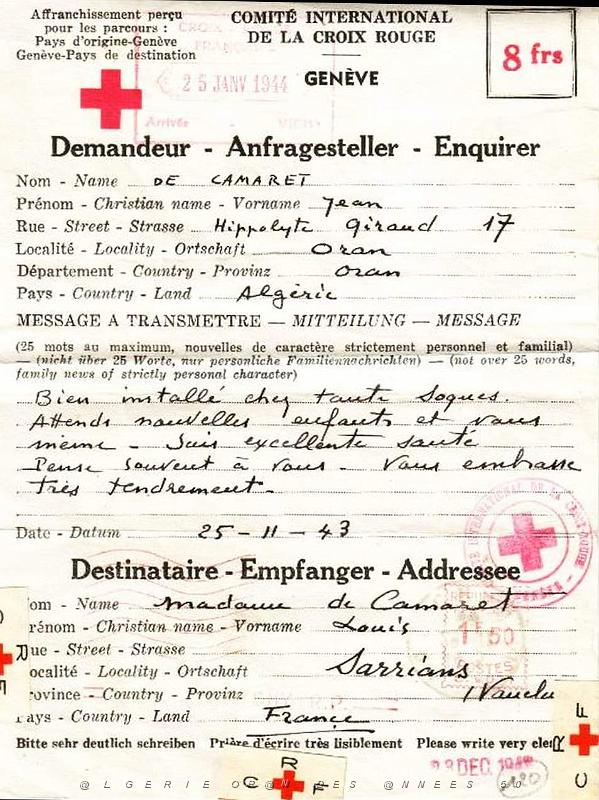 Affranchissement perçu
pour les parcours :
Pays d'origine-Genève
Genève-Pays de destination
COMITÉ INTERNATIONAL
DE LA CROIX ROUGE
GENÈVE
8 frs
CROIX
FRANÇAISE
25 JANV 1944
Arrivée - VICHY
Demandeur - Anfragesteller - Enquirer
Nom - Name DE CAMARET
Prénom - Christian name - Vorname Jean
Rue - Street - Strasse Hippolyte Giraud 17
Localité - Locality - Ortschaft Oran
Département - Country - Provinz Oran
Pays - Country - Land Algérie
MESSAGE A TRANSMETTRE — MITTEILUNG — MESSAGE
(25 mots au maximum, nouvelles de caractère strictement personnel et familial)
— (nicht über 25 Worte, nur personliche Familiennachrichten) — (not over 25 words,
family news of strictly personal character)
Bien installé chez tante Soques.
Attends nouvelles enfants et vous
même - Suis excellente santé
Pense souvent à vous - Vous embrasse
très tendrement -
Date - Datum 25 - 11 - 43
Destinataire - Empfanger - Addressee
om - Name Madame de Camaret
rénom - Christian name - Vorname Louis
ue - Street - Strasse
ocalité - Locality - Ortschaft Sarrians
rovince - Country - Provinz (Vauclu
ays - Country - Land France
Bitte sehr deutlich schreiben Prière d'écrire très lisiblement Please write very clea
INTERNATIONAL DE LA CROIX-ROUGE
1 50
POSTES
DEC. 194
120
R F
C
F
R
C
R
F
@LGERIE OR@N DES @NNEES 50